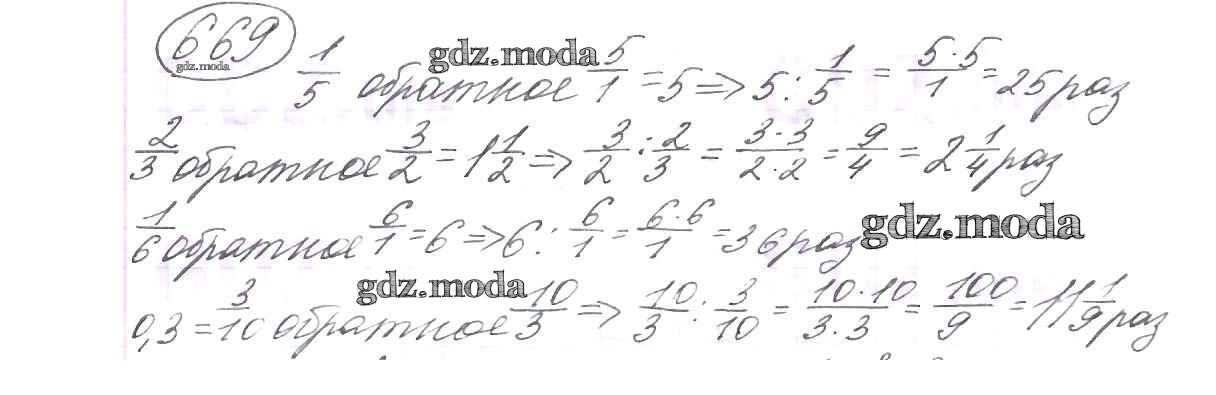 669 gdz.moda
1/5 обратное 5/1 = 5 => 5 : 1/5 = 5·5/1 = 25 раз gdz.moda
2/3 обратное 3/2 = 1 1/2 => 3/2 : 2/3 = 3·3/2·2 = 9/4 = 2 1/4 раз
1/6 обратное 6/1 = 6 => 6 : 6/1 = 6·6/1 = 36 раз gdz.moda
0,3 = 3/10 обратное 10/3 => 10/3 : 3/10 = 10·10/3·3 = 100/9 = 11 1/9 раз gdz.moda